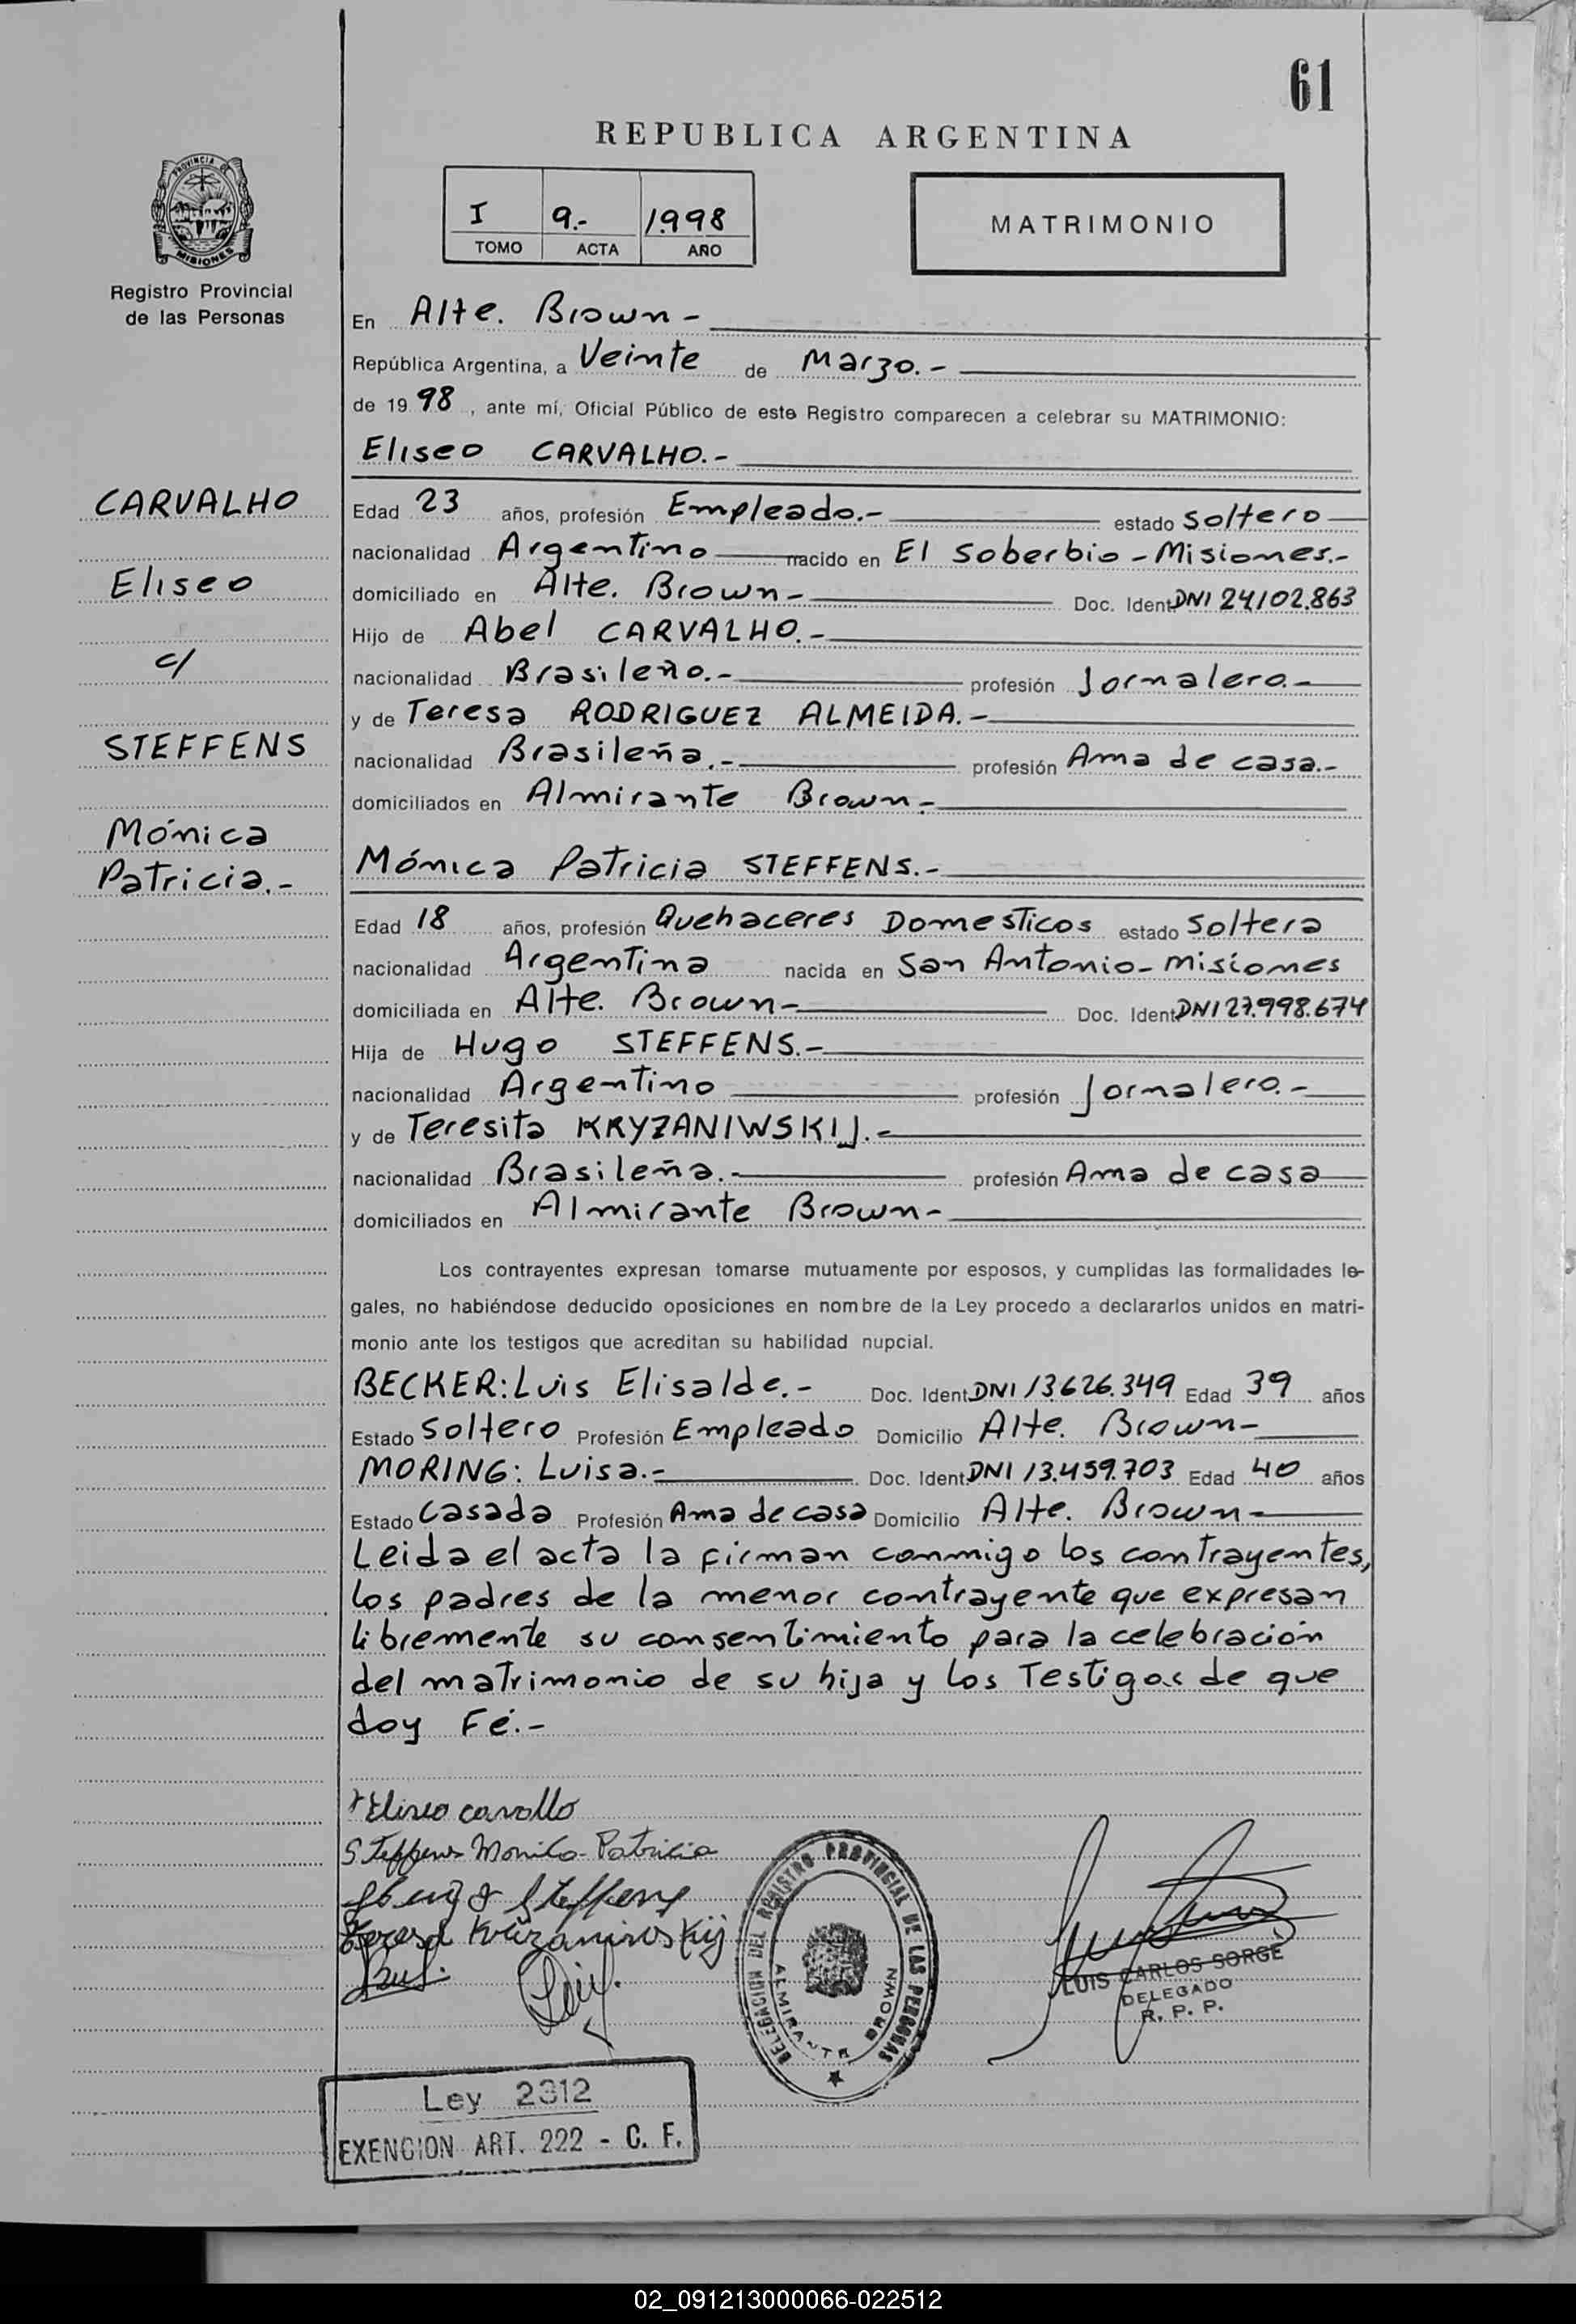 61
REPUBLICA ARGENTINA
PROVINCIA DE
MISIONES
Registro Provincial
de las Personas
I 9.- 1.998
TOMO ACTA AÑO
MATRIMONIO
En Alte. Brown -
República Argentina, a Veinte de Marzo.-
de 19 98, ante mí, Oficial Público de este Registro comparecen a celebrar su MATRIMONIO:
Eliseo CARVALHO.-
CARVALHO
Eliseo
c/
STEFFENS
Mónica
Patricia.-
Edad 23 años, profesión Empleado.- estado soltero
nacionalidad Argentino nacido en El Soberbio - Misiones.-
domiciliado en Alte. Brown - Doc. Ident. DNI 24102.863
Hijo de Abel CARVALHO.-
nacionalidad Brasileño.- profesión Jornalero.-
y de Teresa RODRIGUEZ ALMEIDA.-
nacionalidad Brasileña.- profesión Ama de casa.-
domiciliados en Almirante Brown.-
Mónica Patricia STEFFENS.-
Edad 18 años, profesión Quehaceres Domesticos estado Soltera
nacionalidad Argentina nacida en San Antonio - misiones
domiciliada en Alte. Brown - Doc. Ident. DNI 27.998.674
Hija de Hugo STEFFENS.-
nacionalidad Argentino profesión Jornalero.-
y de Teresita KRYZANIWSKIJ.-
nacionalidad Brasileña.- profesión Ama de casa
domiciliados en Almirante Brown -
Los contrayentes expresan tomarse mutuamente por esposos, y cumplidas las formalidades le-
gales, no habiéndose deducido oposiciones en nombre de la Ley procedo a declararlos unidos en matri-
monio ante los testigos que acreditan su habilidad nupcial.
BECKER: Luis Elisalde.- Doc. Ident. DNI 13.626.349 Edad 39 años
Estado Soltero Profesión Empleado Domicilio Alte. Brown -
MORING: Luisa.- Doc. Ident. DNI 13.459.703 Edad 40 años
Estado Casada Profesión Ama de casa Domicilio Alte. Brown -
Leida el acta la firman conmigo los contrayentes,
los padres de la menor contrayente que expresan
libremente su consentimiento para la celebración
del matrimonio de su hija y los Testigos de que
doy Fé.-
Eliseo carvallo
Steffens Monica Patricia
Hugo Steffens
Teresa Krizaniwskij
DELEGACION DEL REGISTRO PROVINCIAL DE LAS PERSONAS
ALMIRANTE BROWN
LUIS CARLOS SORGE
DELEGADO
R. P. P.
Ley 2312
EXENCION ART. 222 - C. F.
02_091213000066-022512